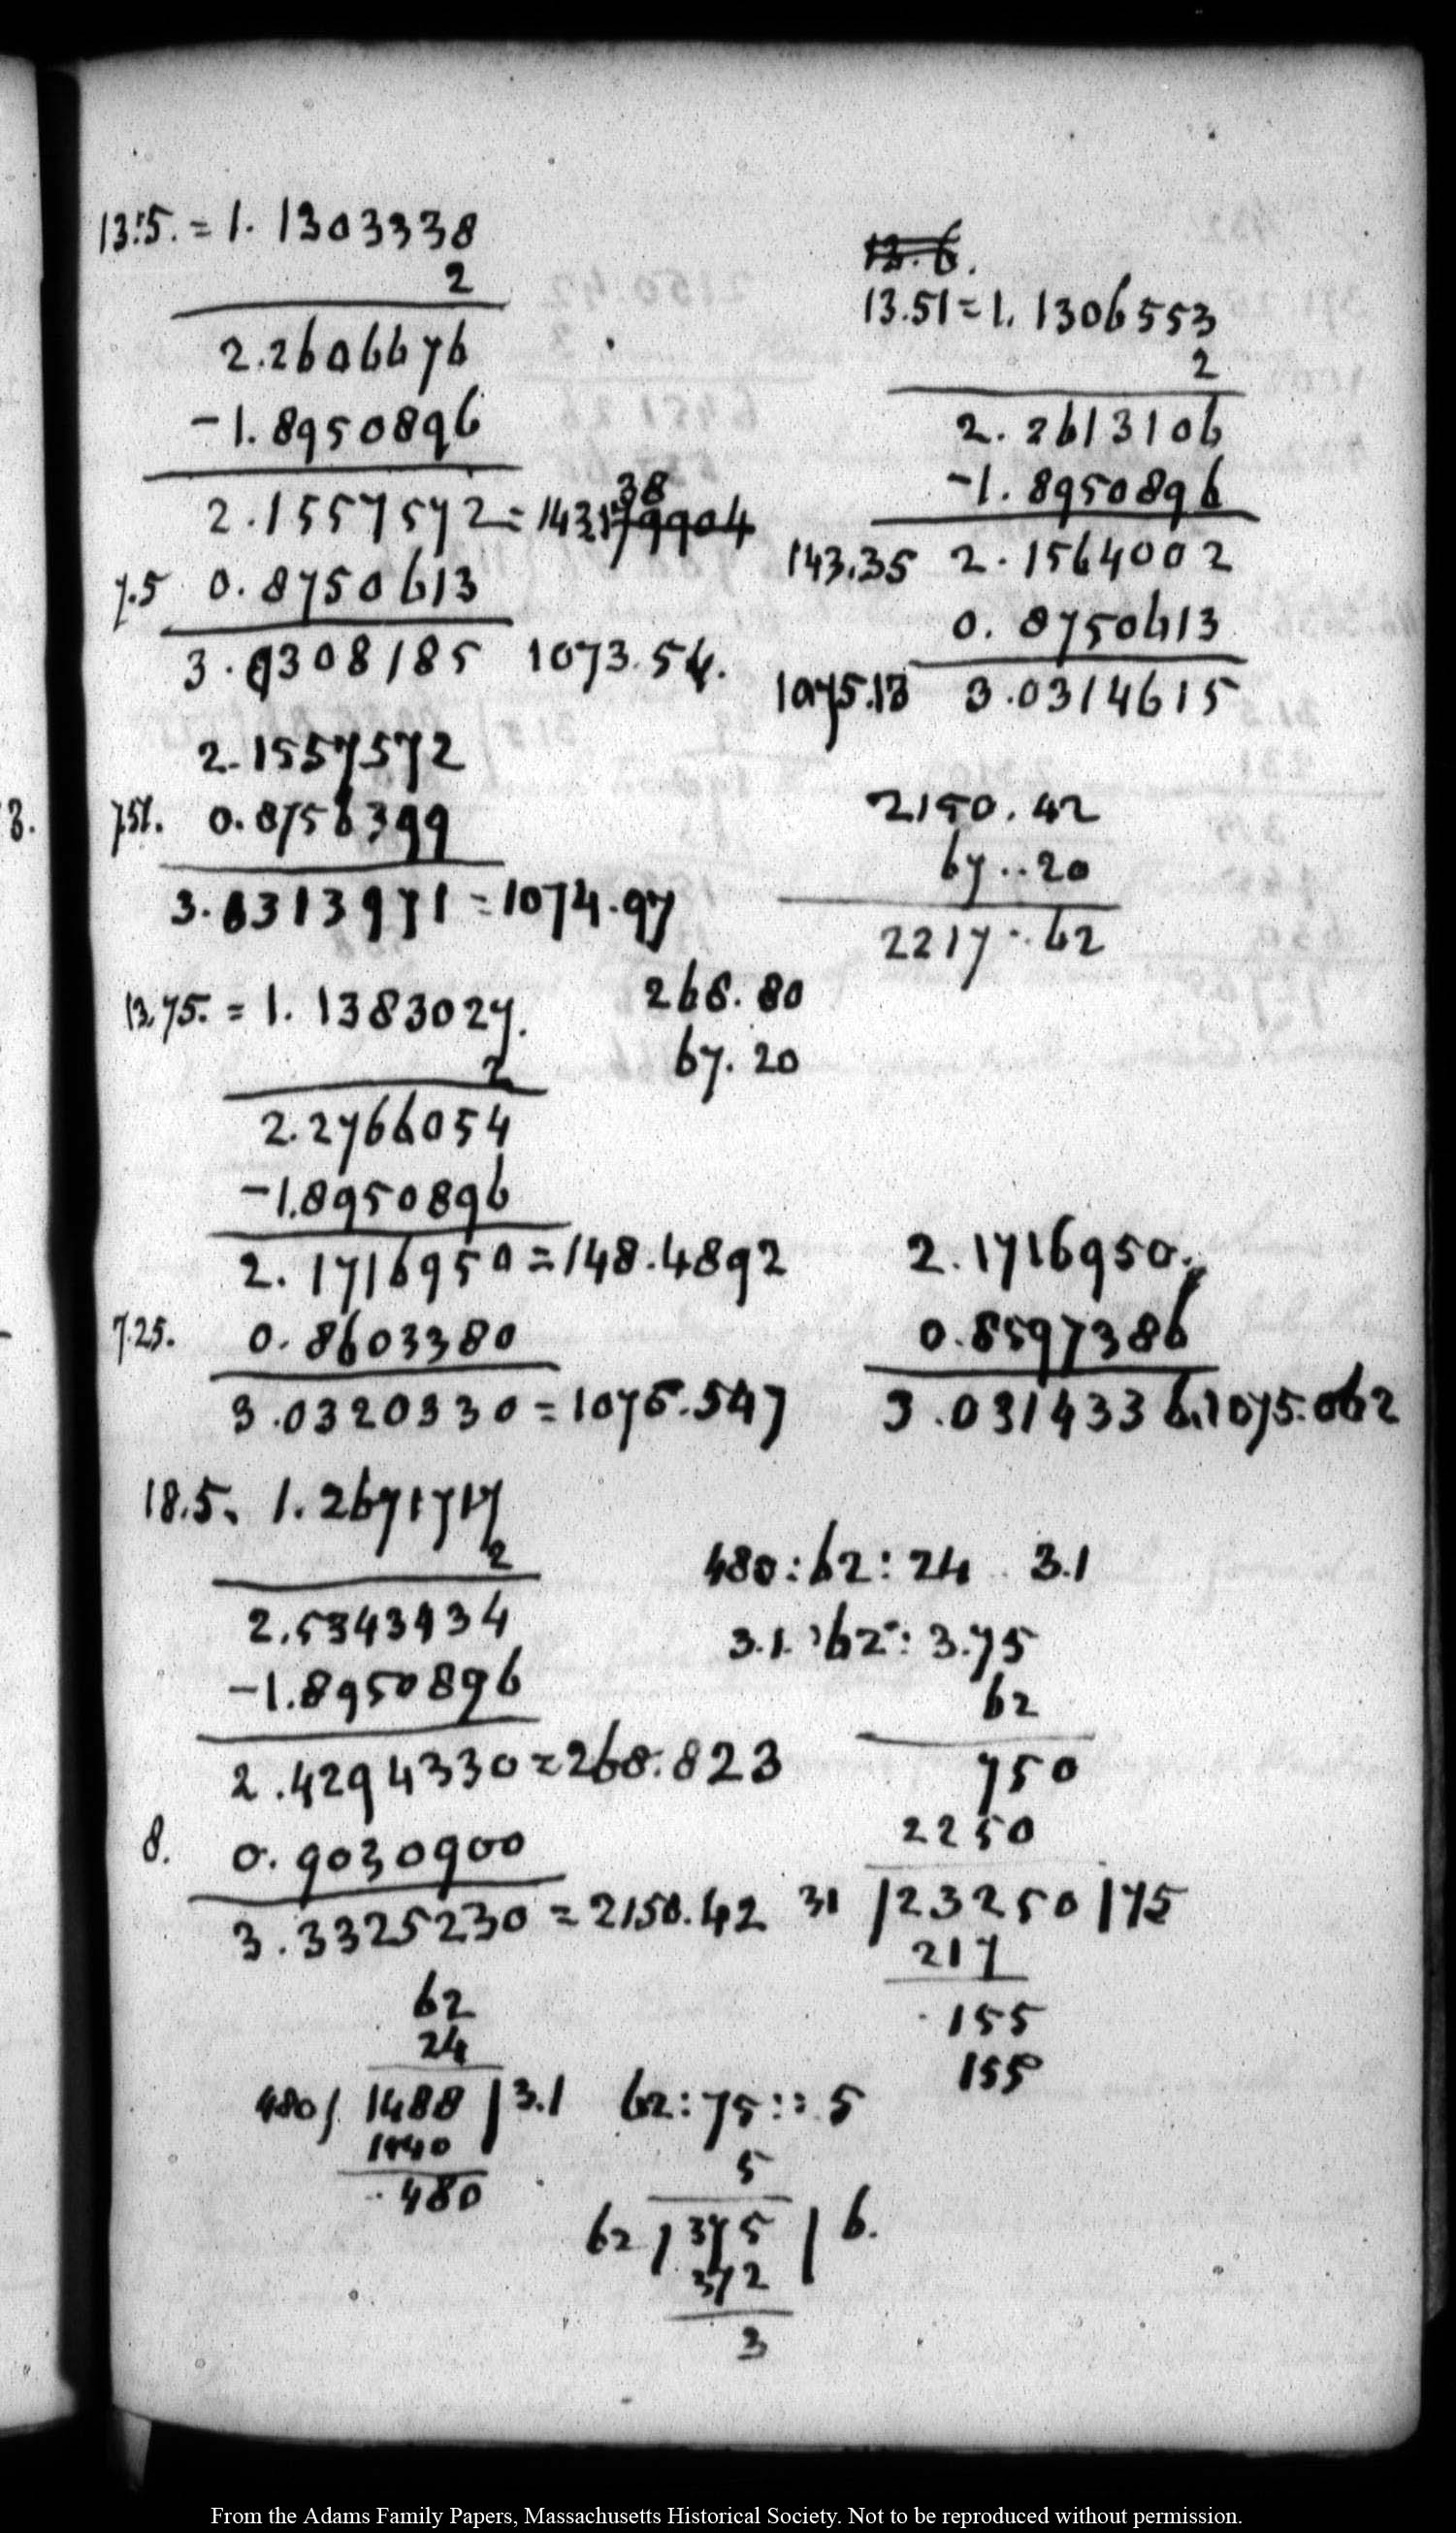 13.5. = 1. 1303338
2
2.2606676
-1. 8950896
38
2.1557572 = 143.179904
7.5 0. 8750613
3.0308185 1073.54.
2.1557572
7.51. 0.8756399
3.0313971 = 1074.97
13.75. = 1. 1383027.
2
2.2766054
-1.8950896
2. 1716950 = 148.4892
7.25. 0. 8603380
3.0320330 = 1076.547
18.5. 1.2671717
2
2.5343434
-1.8950896
2.4294330 = 268.823
8. 0.9030900
3.3325230 = 2150.42
62
24
480 / 1488 | 3.1
1440
480
13.6.
13.51 = 1. 1306553
2
2. 2613106
-1. 8950896
143.35 2. 1564002
0. 8750613
1075.13 3.0314615
2150. 42
67..20
2217. 62
268. 80
67. 20
2.1716950.
0.8597386
3.0314336. 1075.062
480 : 62 : 24 .. 3.1
3.1. : 62 :: 3.75
62
750
2250
31 / 23250 | 75
217
155
155
62 : 75 :: 5
5
62 / 375 | 6.
372
3
3.
From the Adams Family Papers, Massachusetts Historical Society. Not to be reproduced without permission.